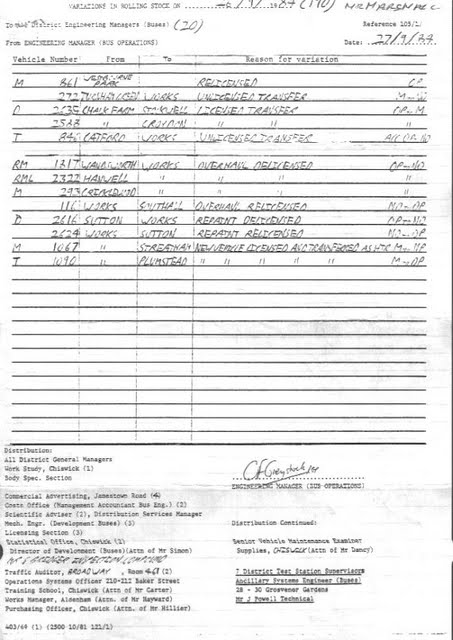 VARIATIONS IN ROLLING STOCK ON
To District Engineering Managers (Buses) (20)
Reference 103/1/
From ENGINEERING MANAGER (BUS OPERATIONS)
Date: 27/9/84
Vehicle Number From To Reason for variation
M 861 WESTBOURNE PARK RELICENSED
272 WORKS UNLICENSED TRANSFER
D 2635 CHALK FARM STOCKWELL LICENSED TRANSFER OP-M
2523 " CROYDON " "
T 840 CATFORD WORKS UNLICENSED TRANSFER
RM 1317 WANDSWORTH WORKS OVERHAUL DELICENSED OP-NO
RML 2322 HANWELL " " " "
M 293 CRICKLEWOOD " " " "
116 WORKS SOUTHALL OVERHAUL RELICENSED NO-OP
D 2616 SUTTON WORKS REPAINT DELICENSED OP-NO
2624 WORKS SUTTON REPAINT RELICENSED NO-OP
M 1067 " STREATHAM NEW VEHICLE LICENSED AND TRANSFERRED AS HTR M-OP
T 1090 " PLUMSTEAD " " " " " M-OP
Distribution:
All District General Managers
Work Study, Chiswick (1)
Body Spec. Section
ENGINEERING MANAGER (BUS OPERATIONS)
Commercial Advertising, Jamestown Road (4)
Costs Office (Management Accountant Bus Eng.) (2)
Scientific Adviser (2), Distribution Services Manager
Mech. Engr. (Development Buses) (3)
Distribution Continued:
Licensing Section (3)
Statistical Office, Chiswick (1)
Senior Vehicle Maintenance Examiner
Director of Development (Buses)(Attn of Mr Simon)
Supplies, CHISWICK (Attn of Mr Dancy)
Traffic Auditor, BROADWAY, Room (2)
7 District Test Station Supervisors
Operations Systems Officer 210-212 Baker Street
Ancillary Systems Engineer (Buses)
Training School, Chiswick (Attn of Mr Carter)
28 - 30 Grosvenor Gardens
Works Manager, Aldenham (Attn. of Mr Hayward)
Mr J Powell Technical
Purchasing Officer, Chiswick (Attn of Mr Hillier)
403/68 (1) (2500 10/81 121/1)